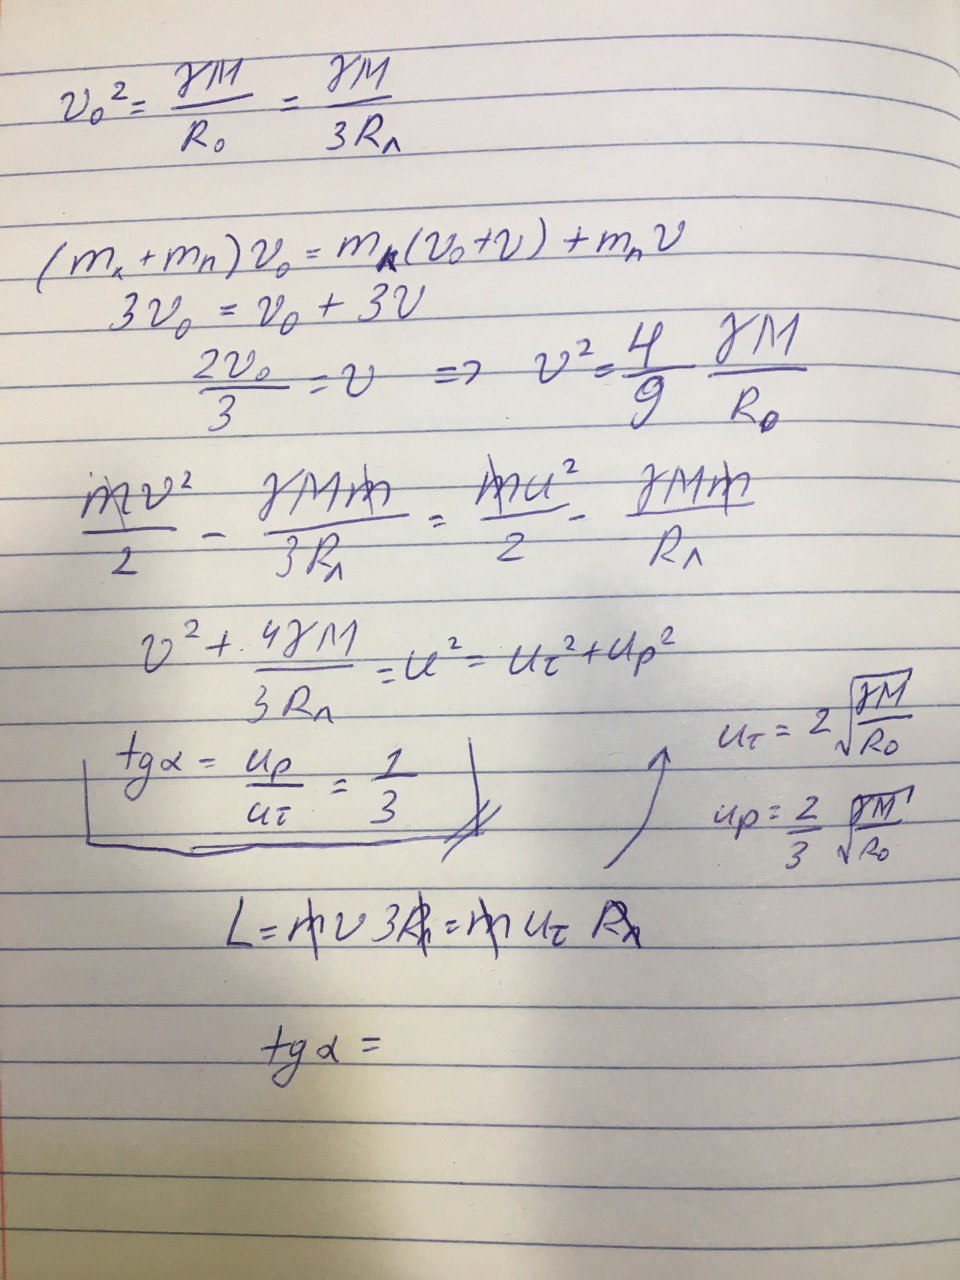 v₀² = γM/R₀ = γM/3Rл
(mк + mп)v₀ = mк(v₀+v) + mпv
3v₀ = v₀ + 3v
2v₀/3 = v => v² = 4/9 γM/R₀
mv²/2 - γMm/3Rл = mu²/2 - γMm/Rл
v² + 4γM/3Rл = u² = uτ² + up²
tgα = up/uτ = 1/3
uτ = 2√(γM/R₀)
up = 2/3 √(γM/R₀)
L = mv3Rл = muτRл
tgα =